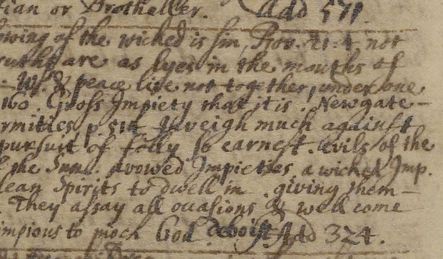 tian or Brothaller. Add 571
owing of the wicked is sin, Prov. 21. 4. not
ruths are as lyes in the mouths of
W. & peace live not together, under one
Gross Impiety that it is. Newgate
rmities, p. 514. Inveigh much against
pursuit of folly so earnest. evils of the
f the Summ. avowed Impieties, a wicked Imp.
lean Spirits to dwell in. giving them
They assay all occasions & wellcome
impious to mock God. Add 324.